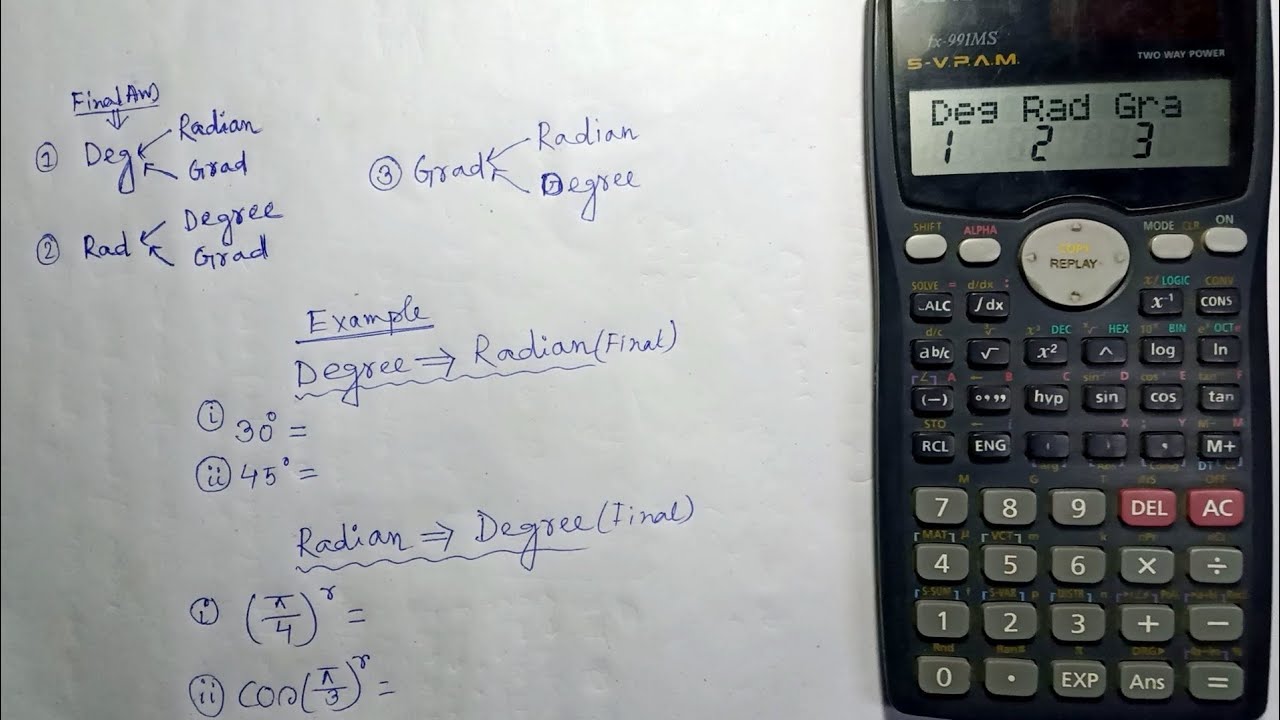 Final Ans
① Deg Radian
Grad
② Rad Degree
Grad
③ Grad Radian
Degree
Example
Degree ⇒ Radian (Final)
ⓘ 30° =
ⓘⓘ 45° =
Radian ⇒ Degree (Final)
ⓘ (π/4)ʳ =
ⓘⓘ cos(π/3)ʳ =
fx-991MS
S-V.P.A.M.
TWO WAY POWER
Deg Rad Gra
1 2 3
SHIFT ALPHA MODE CLR ON
COPY
REPLAY
SOLVE = d/dx : LOGIC CONV
CALC ∫dx x⁻¹ CONS
d/c DEC HEX BIN OCT
ab/c √ x² ^ log ln
A B C sin D cos E tan F
(−) °,,, hyp sin cos tan
STO X Y M− M
RCL ENG , M+
DT CL
M G T INS OFF
7 8 9 DEL AC
MAT VCT nPr nCr
4 5 6 × ÷
S-SUM S-VAR DISTR
1 2 3 + −
Rnd Ran# π DRG▸ %
0 . EXP Ans =